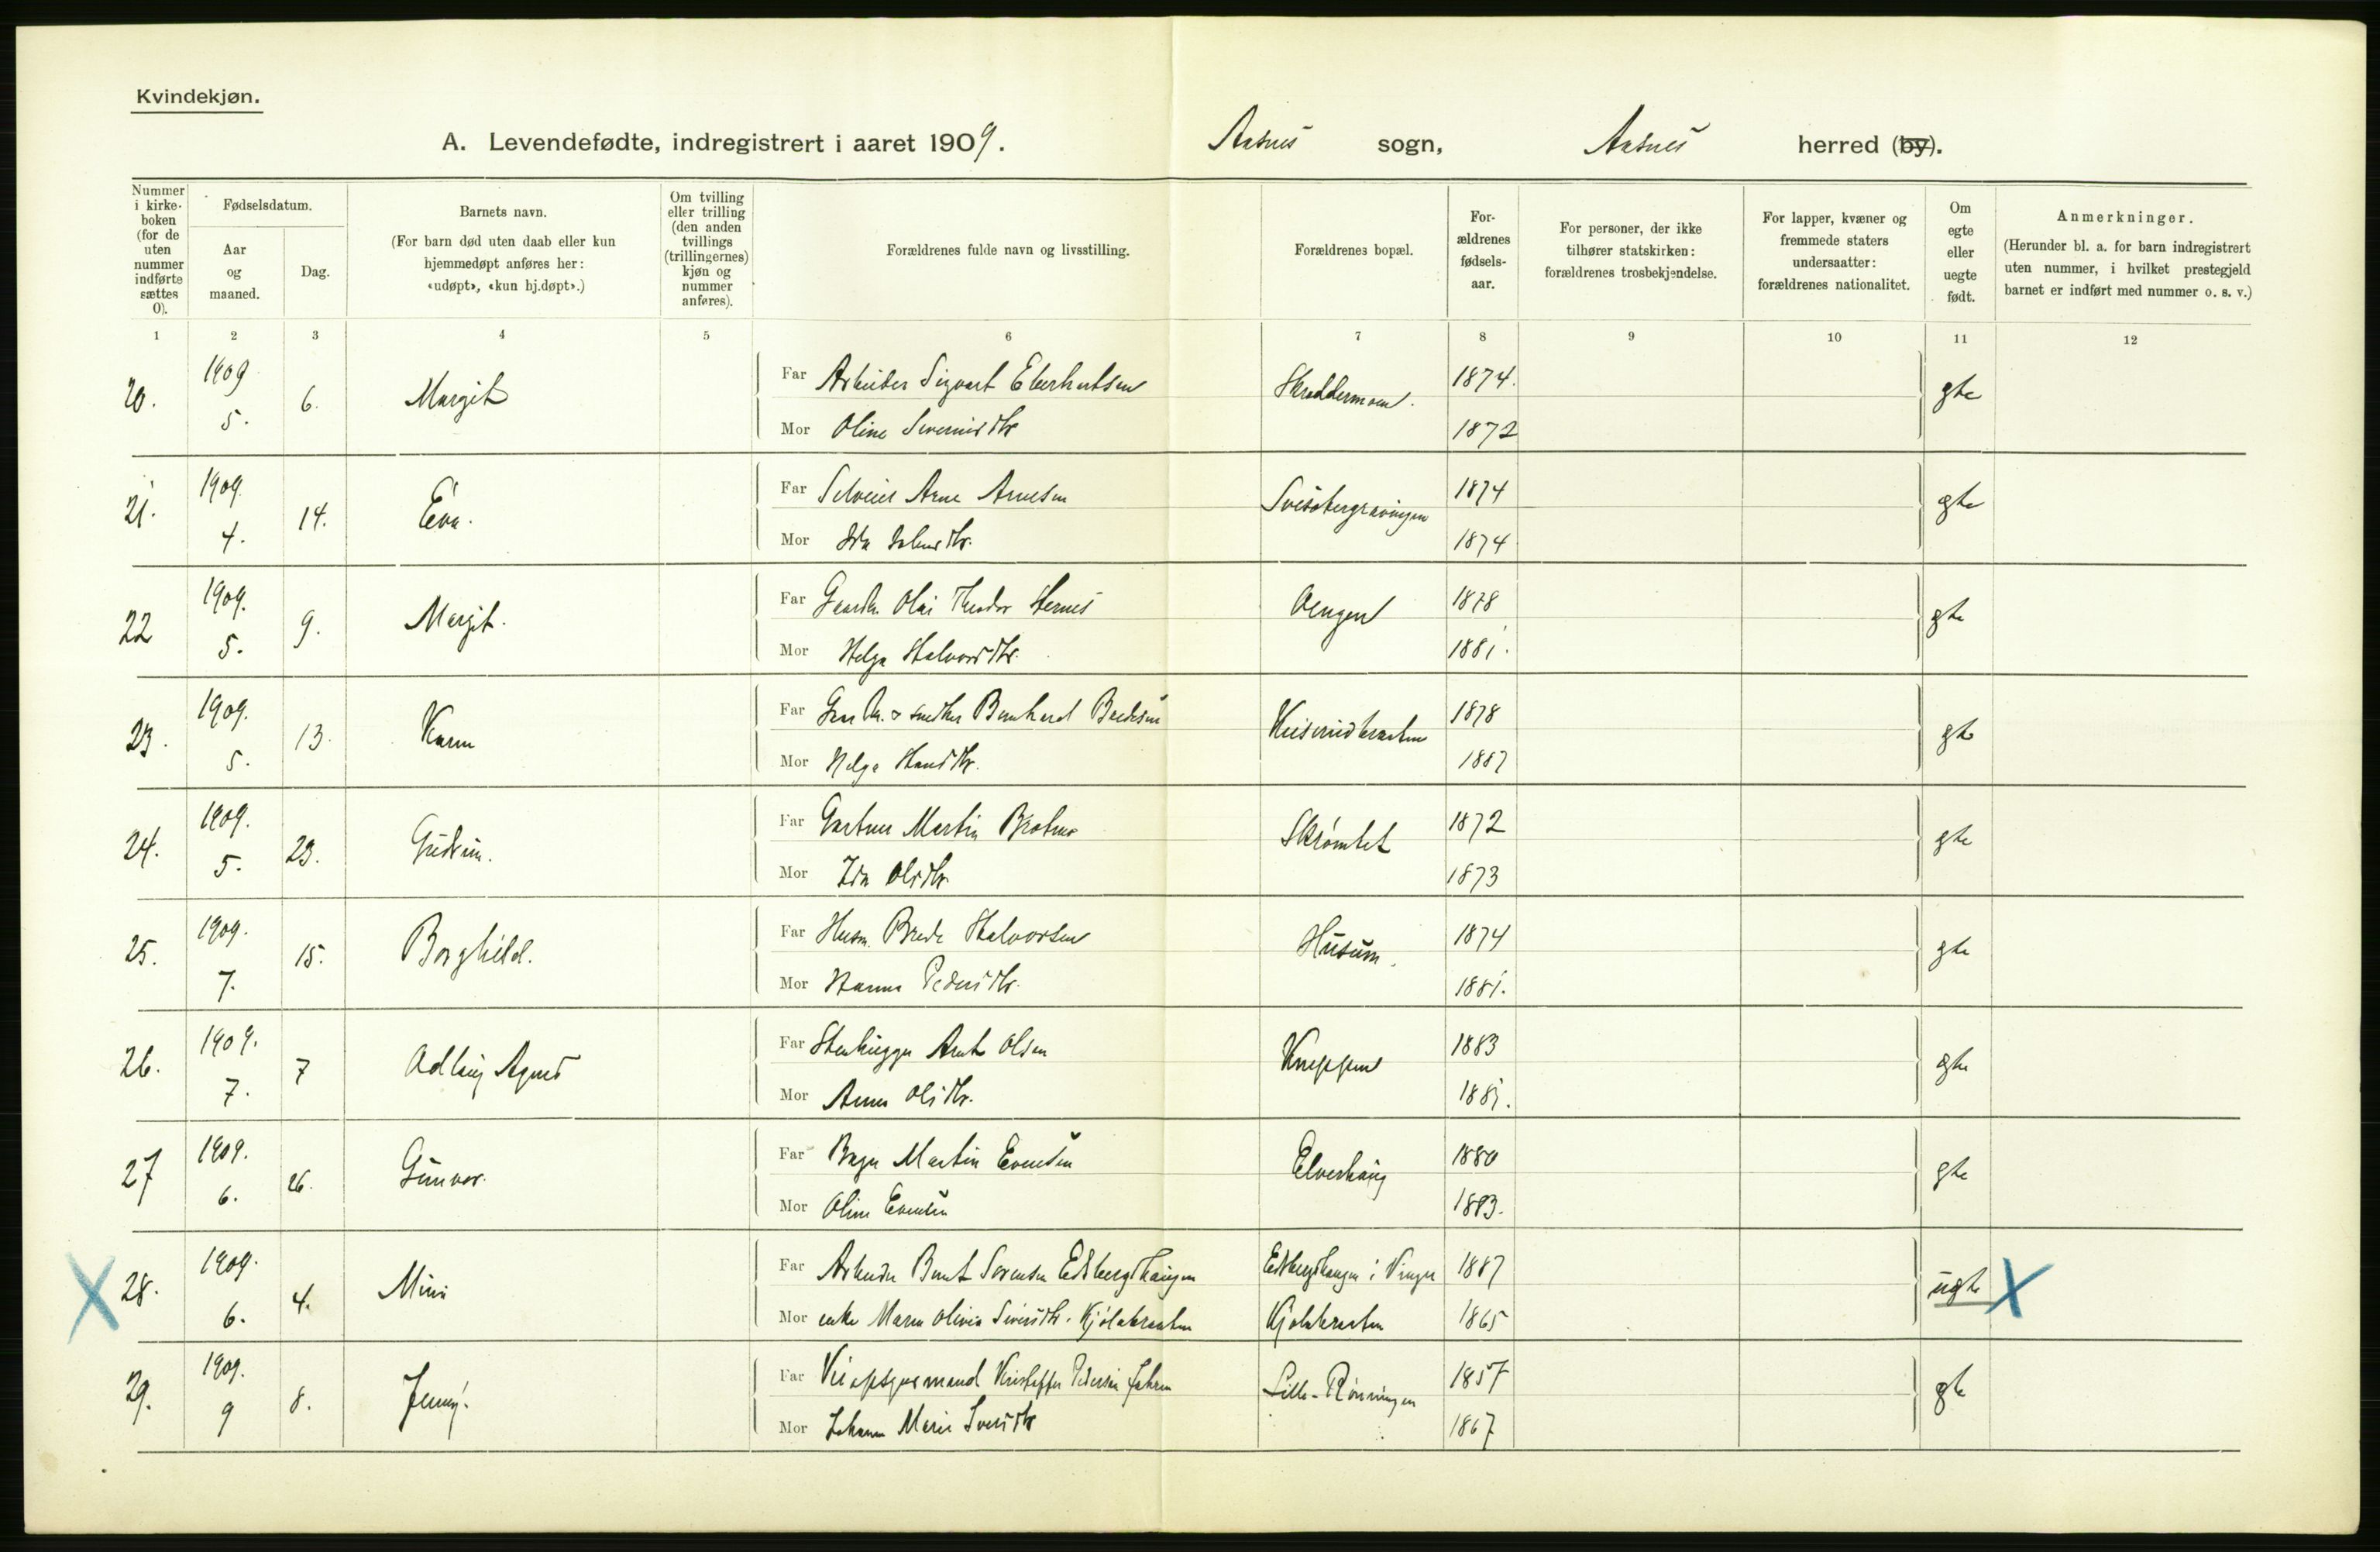 Kvindekjøn.
A. Levendefødte, indregistrert i aaret 1909. Aasnes sogn, Aasnes herred (by).
Nummer i kirke-boken (for de uten nummer indførte sættes 0).
Fødselsdatum.
Aar og maaned.
Dag.
Barnets navn.
(For barn død uten daab eller kun hjemmedøpt anføres her: «udøpt», «kun hj.døpt».)
Om tvilling eller trilling (den anden tvillings (trillingernes) kjøn og nummer anføres).
Forældrenes fulde navn og livsstilling.
Forældrenes bopæl.
For-ældrenes fødsels-aar.
For personer, der ikke tilhører statskirken: forældrenes trosbekjendelse.
For lapper, kvæner og fremmede staters undersaatter: forældrenes nationalitet.
Om egte eller uegte født.
Anmerkninger.
(Herunder bl. a. for barn indregistrert uten nummer, i hvilket prestegjeld barnet er indført med nummer o. s. v.)
1 2 3 4 5 6 7 8 9 10 11 12
20. 1909 5. 6. Margit Far Arbeider Sigvart Eberhartsen Skraddermoen. 1874. gte
Mor Oline Severinsdtr 1872
21. 1909 4. 14. Eva. Far Selveier Arne Arnesen 1874 gte
Mor Ida 1874
22 1909. 5. 9. Margit. Far Gaardbr. Olai Theodor Hernes 1878 gte
Mor Helga Halvorsdtr. 1881.
23. 1909. 5. 13. Karen Far Gaardbr. & snedker Bernhard Bredesen 1878 gte
Mor Helga Hansdtr. 1887
24. 1909. 5. 23. Gudrun. Far Gartner Martin Braten Skrømtet 1872 gte
Mor Ida Olsdtr. 1873
25. 1909. 7. 15. Borghild. Far Husm. Brede Halvorsen Husum. 1874 gte
Mor Hanna Pedersdtr. 1881.
26. 1909. 7. 7 Adlaug Agnes Far Stenhugger Arnt Olsen Kneppen 1883 gte
Mor Anna Olsdtr. 1881.
27 1909. 6. 26. Gunvor. Far Bager Martin Evensen Elverhaug 1880 gte
Mor Oline Evensen 1883.
28. 1909. 6. 4. Far Arbeider Bernt Sørensen Edsbergshaugen Edsbergshaugen i Vinger 1887 ugte
Mor enke Maren Olivia Siversdtr. Kjølabraaten Kjølabraaten 1865
29. 1909. 9 8. Jenny. Far Kristoffer Pedersen Lille-Rønningen 1857 gte
Mor Johanne Marie Iversdtr 1867